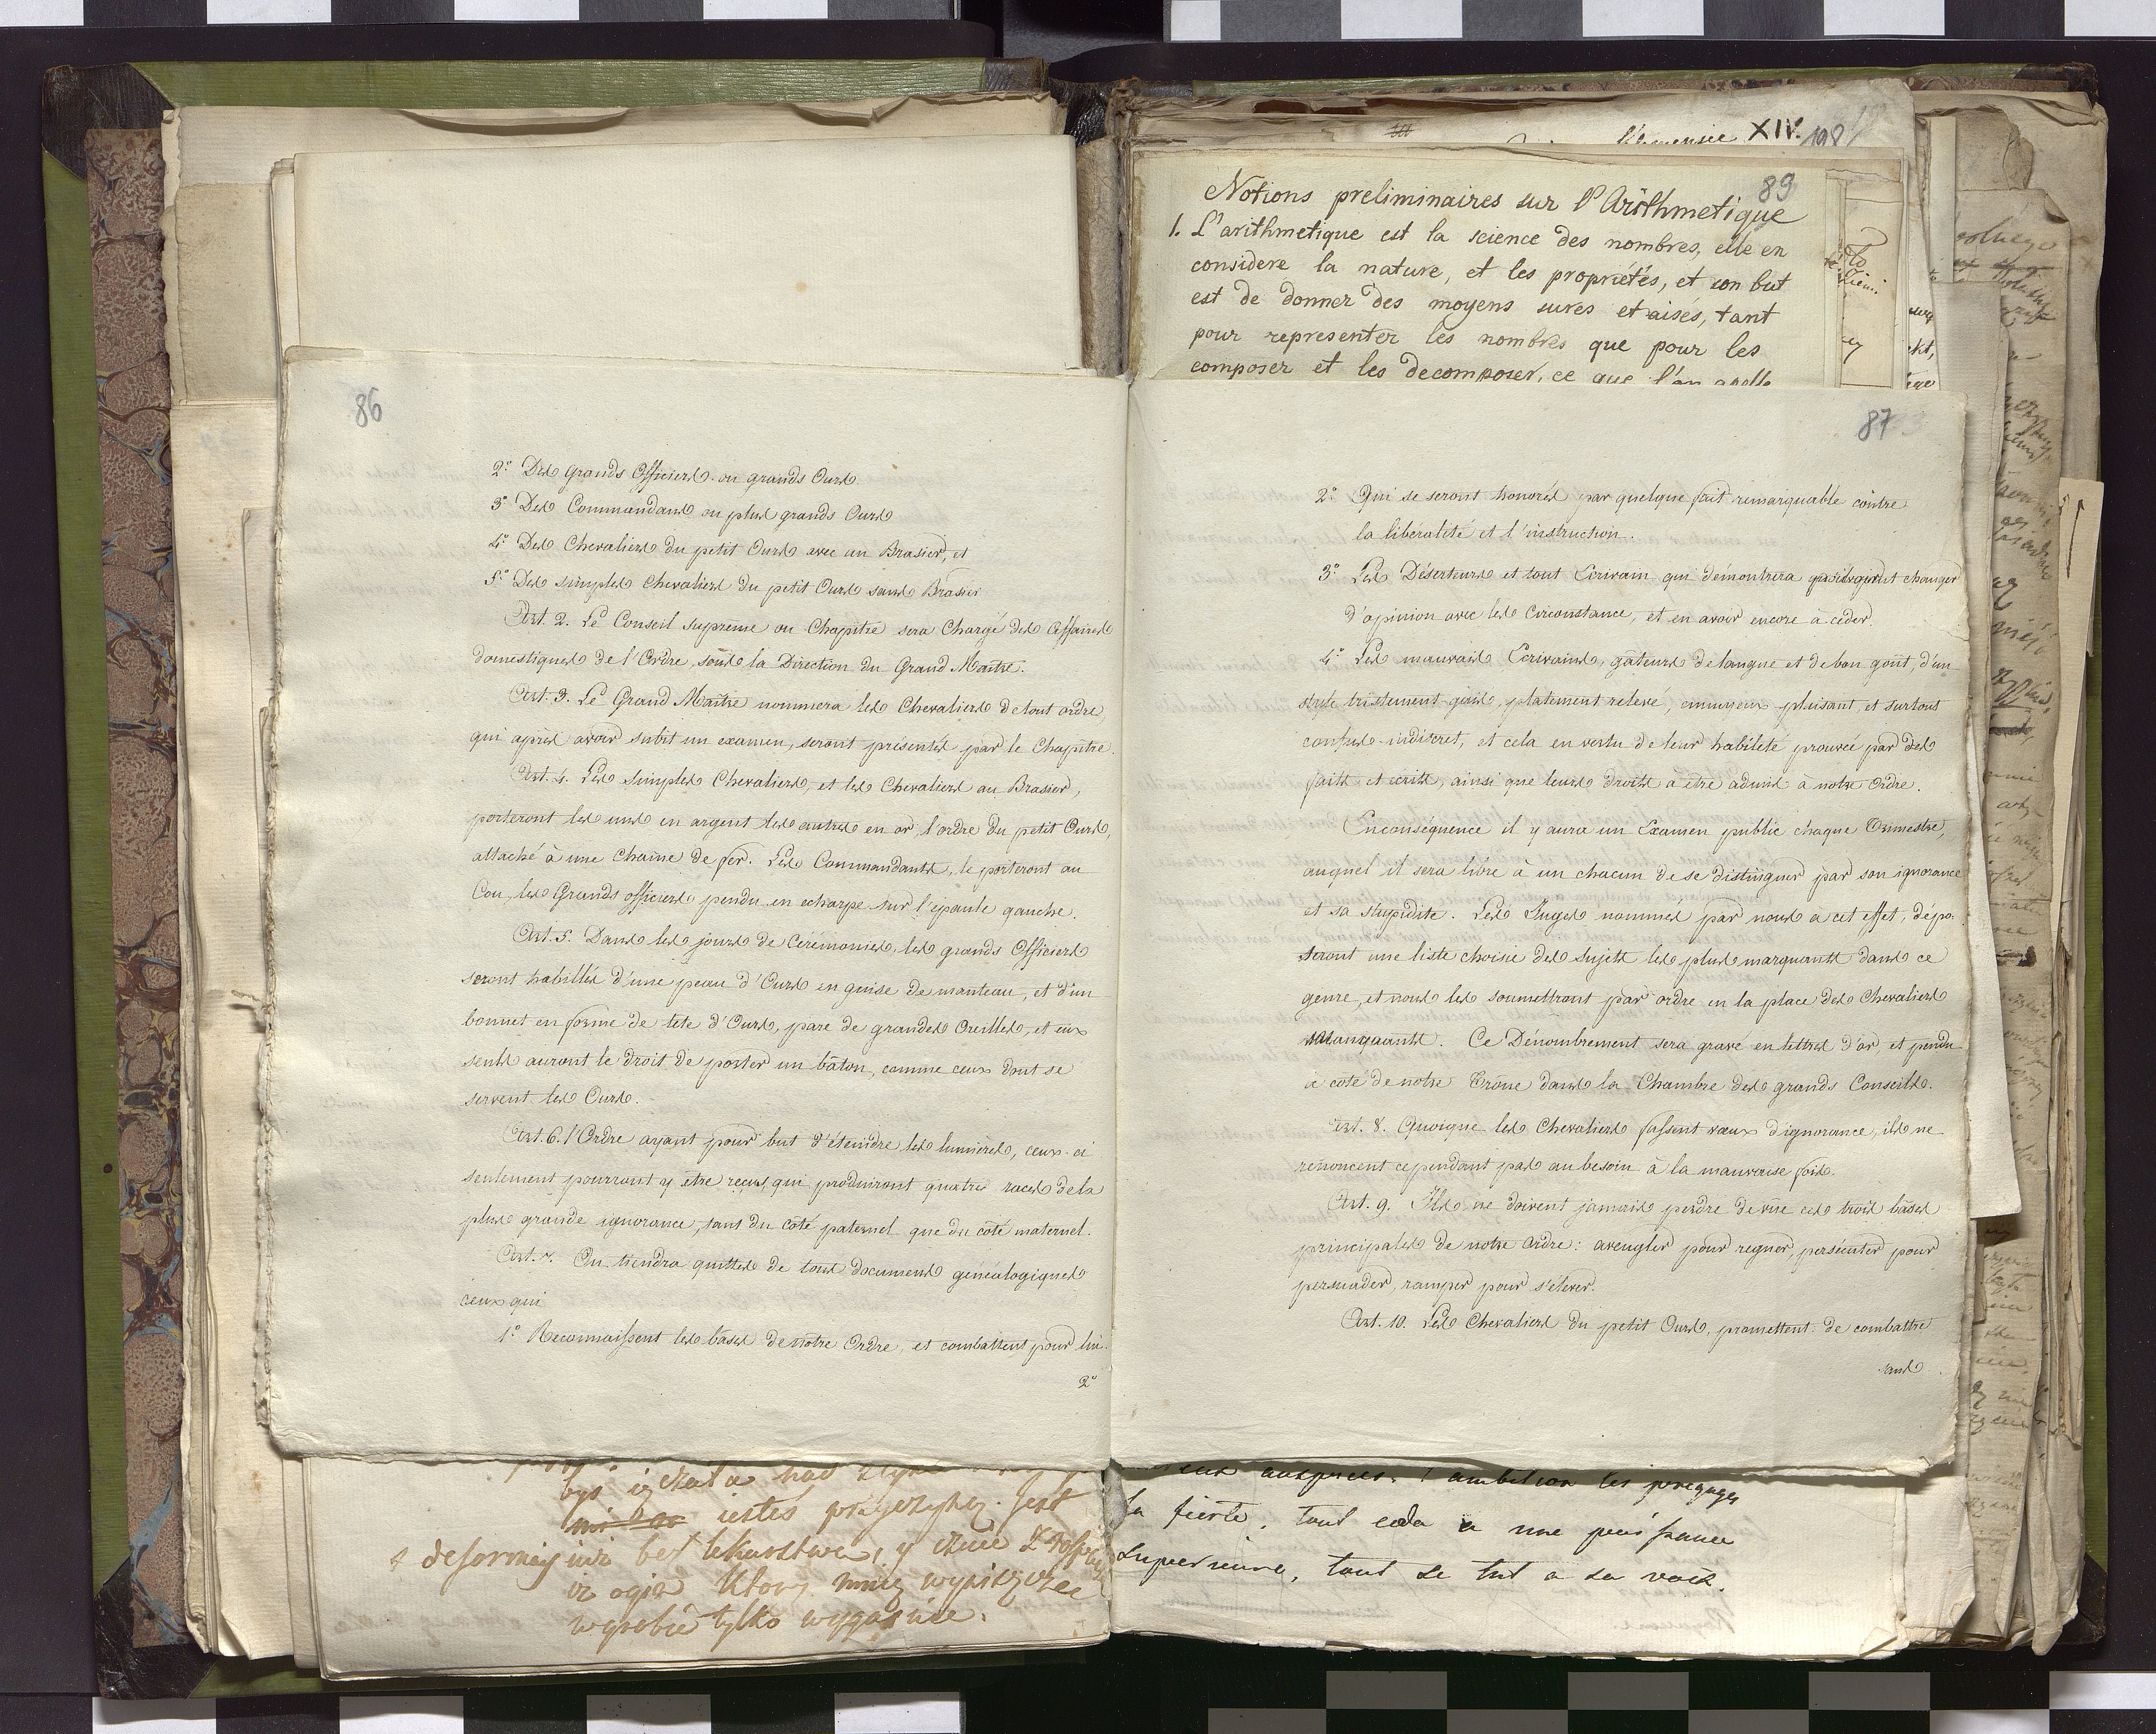 86
2° Des grands Officiers ou grands Ours
3° Des Commandans ou plus grands Ours
4° Des Chevaliers du petit Ours avec un Brasier, et
5° Des simples Chevaliers du petit Ours sans Brasier
Art. 2. Le Conseil suprême ou Chapitre sera Chargé des Affaires
domestiques de l'Ordre, sous la Direction du Grand Maitre.
Art. 3. Le Grand Maitre nommera les Chevaliers de tout ordre,
qui après avoir subit un examen, seront présentés par le Chapitre.
Art. 4. Les simples Chevaliers, et les Chevaliers au Brasier,
porteront les uns en argent les autres en or l'ordre du petit Ours,
attaché à une Chaine de fer. Les Commandants, le porteront au
Cou, les Grands officiers pendu en echarpe sur l'épaule gauche.
Art. 5. Dans les jours de Cérémonies, les grands Officiers
seront habillés d'une peau d'Ours en guise de manteau, et d'un
bonnet en forme de tete d'Ours, paré de grandes Oreilles, et eux
seuls auront le droit de porter un bâton, comme ceux dont se
servent les Ours.
Art. 6. l'Ordre ayant pour but d'éteindre les lumières, ceux-ci
seulement pourront y être reçus, qui produiront quatre races de la
plus grande ignorance, tant du côté paternel que du côté maternel.
Art. 7. On tiendra quittes de tous documens généalogiques
ceux qui
1° Reconnaissent les bases de notre Ordre, et combattent pour lui.
2°
XIV.
198
89
Notions preliminaires sur l'Arithmetique
1. L'arithmetique est la science des nombres, elle en
considere la nature, et les propriétés, et son but
est de donner des moyens sures et aisés, tant
pour representer les nombres que pour les
composer et les decomposer, ce que l'on apelle
87
2° Qui se seront honorés par quelque fait remarquable contre
la libéralité et l'instruction.
3° Les Déserteurs et tout Ecrivain qui démontrera changer
d'opinion avec les circonstance, et en avoir encore à céder.
4° Les mauvais Ecrivains, gâteurs de langue et de bon goût, d'un
style tristement gais, platement relevé, ennuyeux-plaisant, et surtout
confus-indiscret, et cela en vertu de leur habileté prouvée par des
faits et écrits, ainsi que leurs droits à être admis à notre Ordre.
En conséquence il y aura un Examen public chaque Trimestre,
auquel il sera libre à un chacun de se distinguer par son ignorance
et sa stupidité. Les Juges nommés par nous à cet effet, dépo-
seront une liste choisie des sujets les plus marquants dans ce
genre, et nous les soumettront par ordre en la place des Chevaliers
manquants. Ce Dénombrement sera gravé en lettres d'or, et pendu
à côté de notre Trône dans la Chambre des grands Conseils.
Art. 8. Quoique les Chevaliers fassent vœux d'ignorance, ils ne
renoncent cependant pas au besoin à la mauvaise fois.
Art. 9. Ils ne doivent jamais perdre de vue ces trois bases
principales de notre ordre: aveugler pour regner, persécuter pour
persuader, ramper pour s'élever.
Art. 10. Les Chevaliers du petit Ours, promettent de combattre
sans
iestes przyczyną. Jest
wyrobie tylko
ambition les prejuges
la fierte, tout ceda a une puissance
superieure, tout se tut a sa voix.